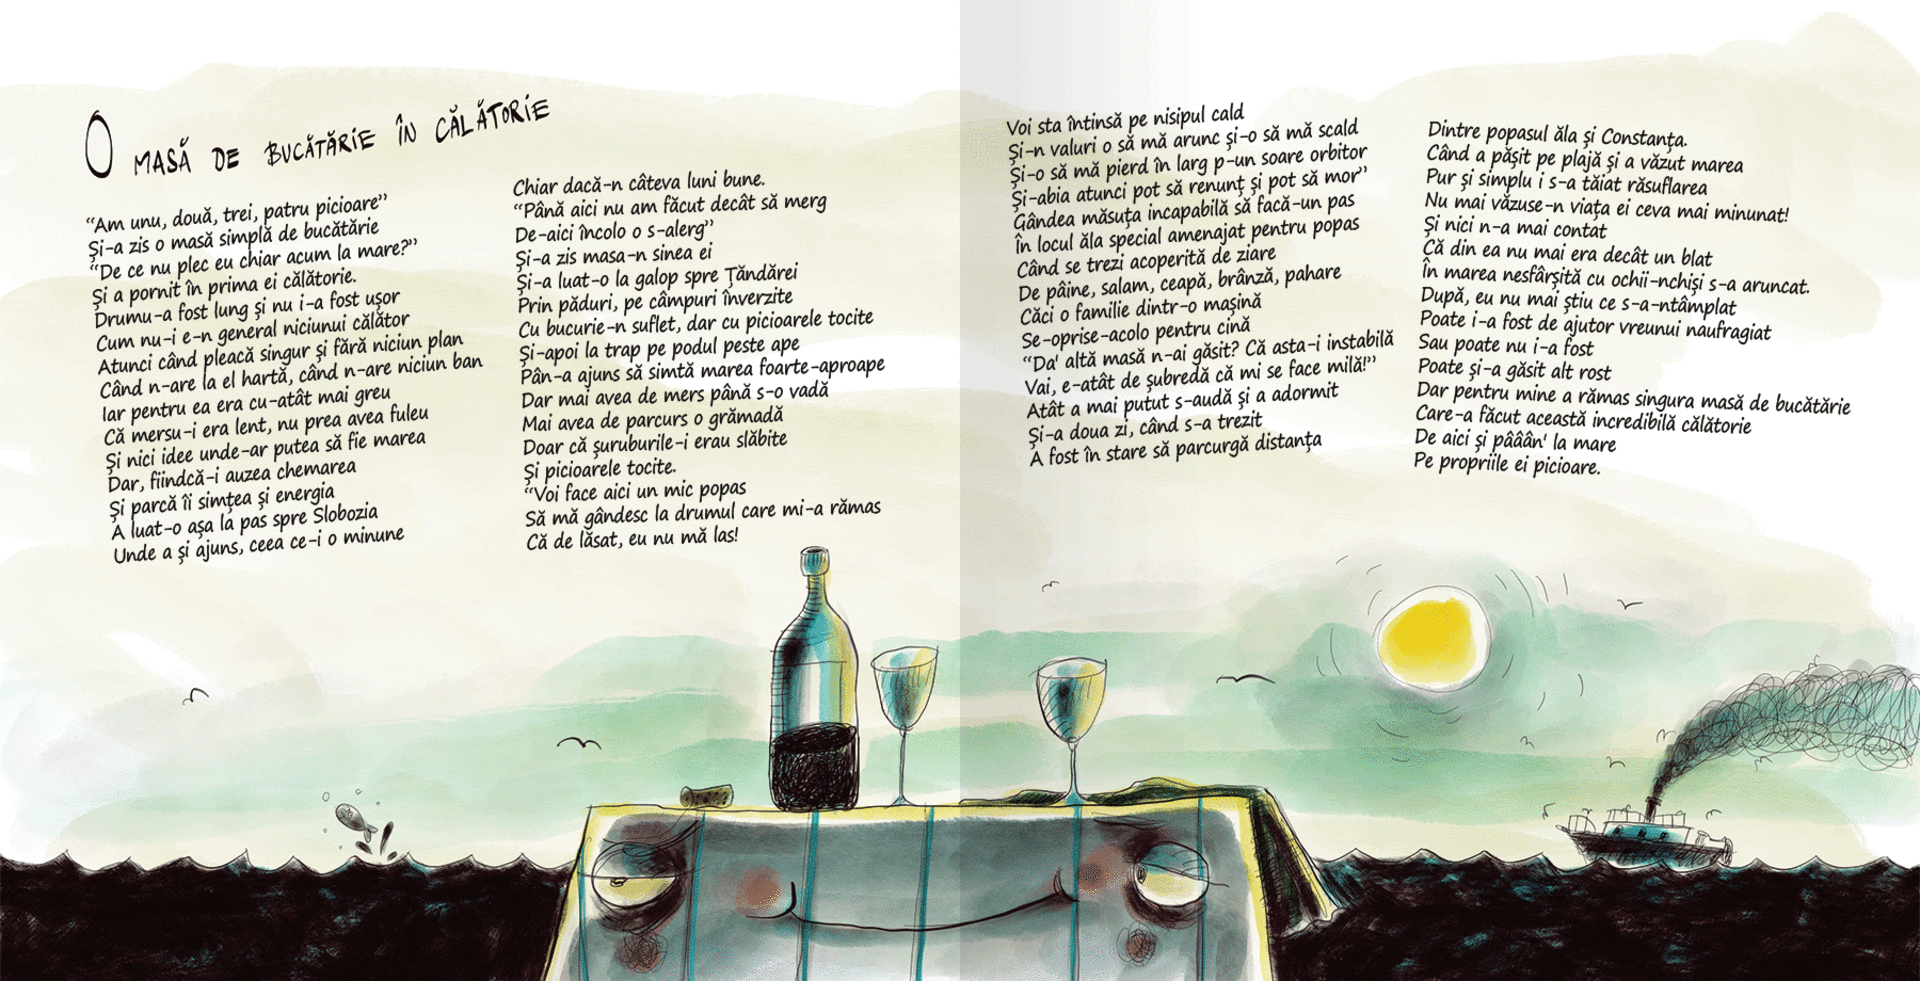 O MASĂ DE BUCĂTĂRIE ÎN CĂLĂTORIE
“Am unu, două, trei, patru picioare”
Și-a zis o masă simplă de bucătărie
“De ce nu plec eu chiar acum la mare?”
Și a pornit în prima ei călătorie.
Drumu-a fost lung și nu i-a fost ușor
Cum nu-i e-n general niciunui călător
Atunci când pleacă singur și fără niciun plan
Când n-are la el hartă, când n-are niciun ban
Iar pentru ea era cu-atât mai greu
Că mersu-i era lent, nu prea avea fuleu
Și nici idee unde-ar putea să fie marea
Dar, fiindcă-i auzea chemarea
Și parcă îi simțea și energia
A luat-o așa la pas spre Slobozia
Unde a și ajuns, ceea ce-i o minune
Chiar dacă-n câteva luni bune.
“Până aici nu am făcut decât să merg
De-aici încolo o s-alerg”
Și-a zis masa-n sinea ei
Și-a luat-o la galop spre Țăndărei
Prin păduri, pe câmpuri înverzite
Cu bucurie-n suflet, dar cu picioarele tocite
Și-apoi la trap pe podul peste ape
Pân-a ajuns să simtă marea foarte-aproape
Dar mai avea de mers până s-o vadă
Mai avea de parcurs o grămadă
Doar că șuruburile-i erau slăbite
Și picioarele tocite.
“Voi face aici un mic popas
Să mă gândesc la drumul care mi-a rămas
Că de lăsat, eu nu mă las!
Voi sta întinsă pe nisipul cald
Și-n valuri o să mă arunc și-o să mă scald
Și-o să mă pierd în larg p-un soare orbitor
Și-abia atunci pot să renunț și pot să mor”
Gândea măsuța incapabilă să facă-un pas
În locul ăla special amenajat pentru popas
Când se trezi acoperită de ziare
De pâine, salam, ceapă, brânză, pahare
Căci o familie dintr-o mașină
Se-oprise-acolo pentru cină
“Da' altă masă n-ai găsit? Că asta-i instabilă
Vai, e-atât de șubredă că mi se face milă!”
Atât a mai putut s-audă și a adormit
Și-a doua zi, când s-a trezit
A fost în stare să parcurgă distanța
Dintre popasul ăla și Constanța.
Când a pășit pe plajă și a văzut marea
Pur și simplu i s-a tăiat răsuflarea
Nu mai văzuse-n viața ei ceva mai minunat!
Și nici n-a mai contat
Că din ea nu mai era decât un blat
În marea nesfârșită cu ochii-nchiși s-a aruncat.
După, eu nu mai știu ce s-a-ntâmplat
Poate i-a fost de ajutor vreunui naufragiat
Sau poate nu i-a fost
Poate și-a găsit alt rost
Dar pentru mine a rămas singura masă de bucătărie
Care-a făcut această incredibilă călătorie
De aici și pâââân' la mare
Pe propriile ei picioare.